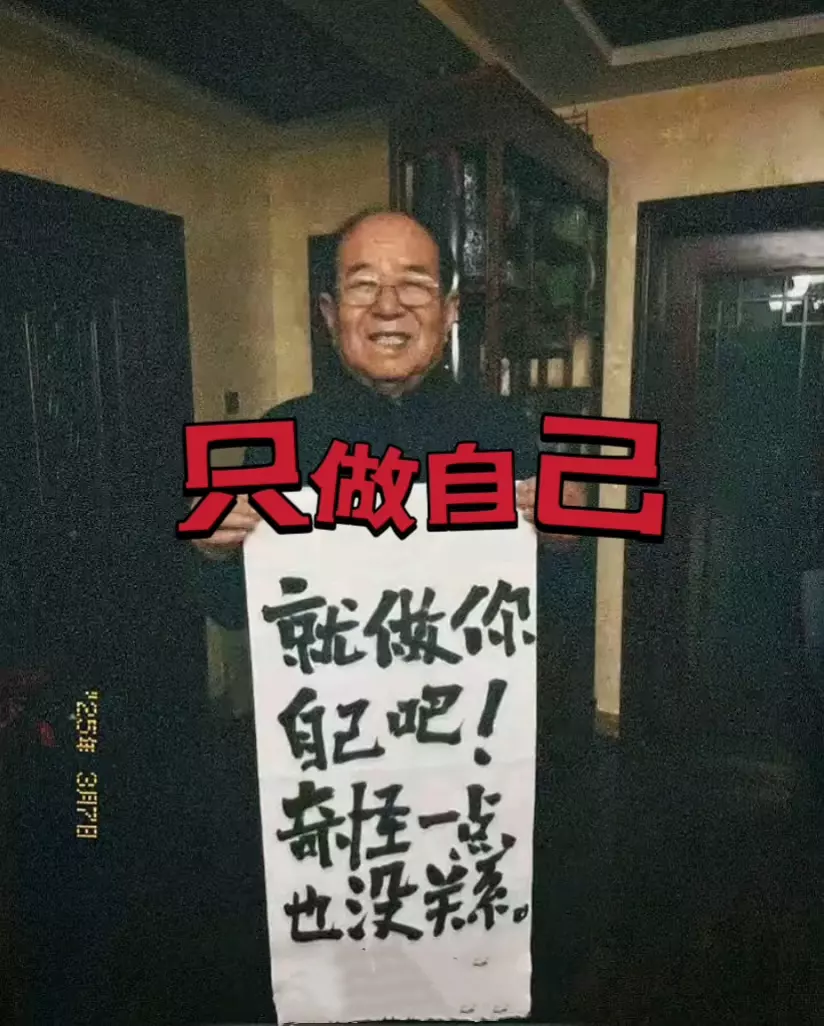 只做自己
就做你
自己吧！
奇怪一点
也没关系。
'25年 3月7日